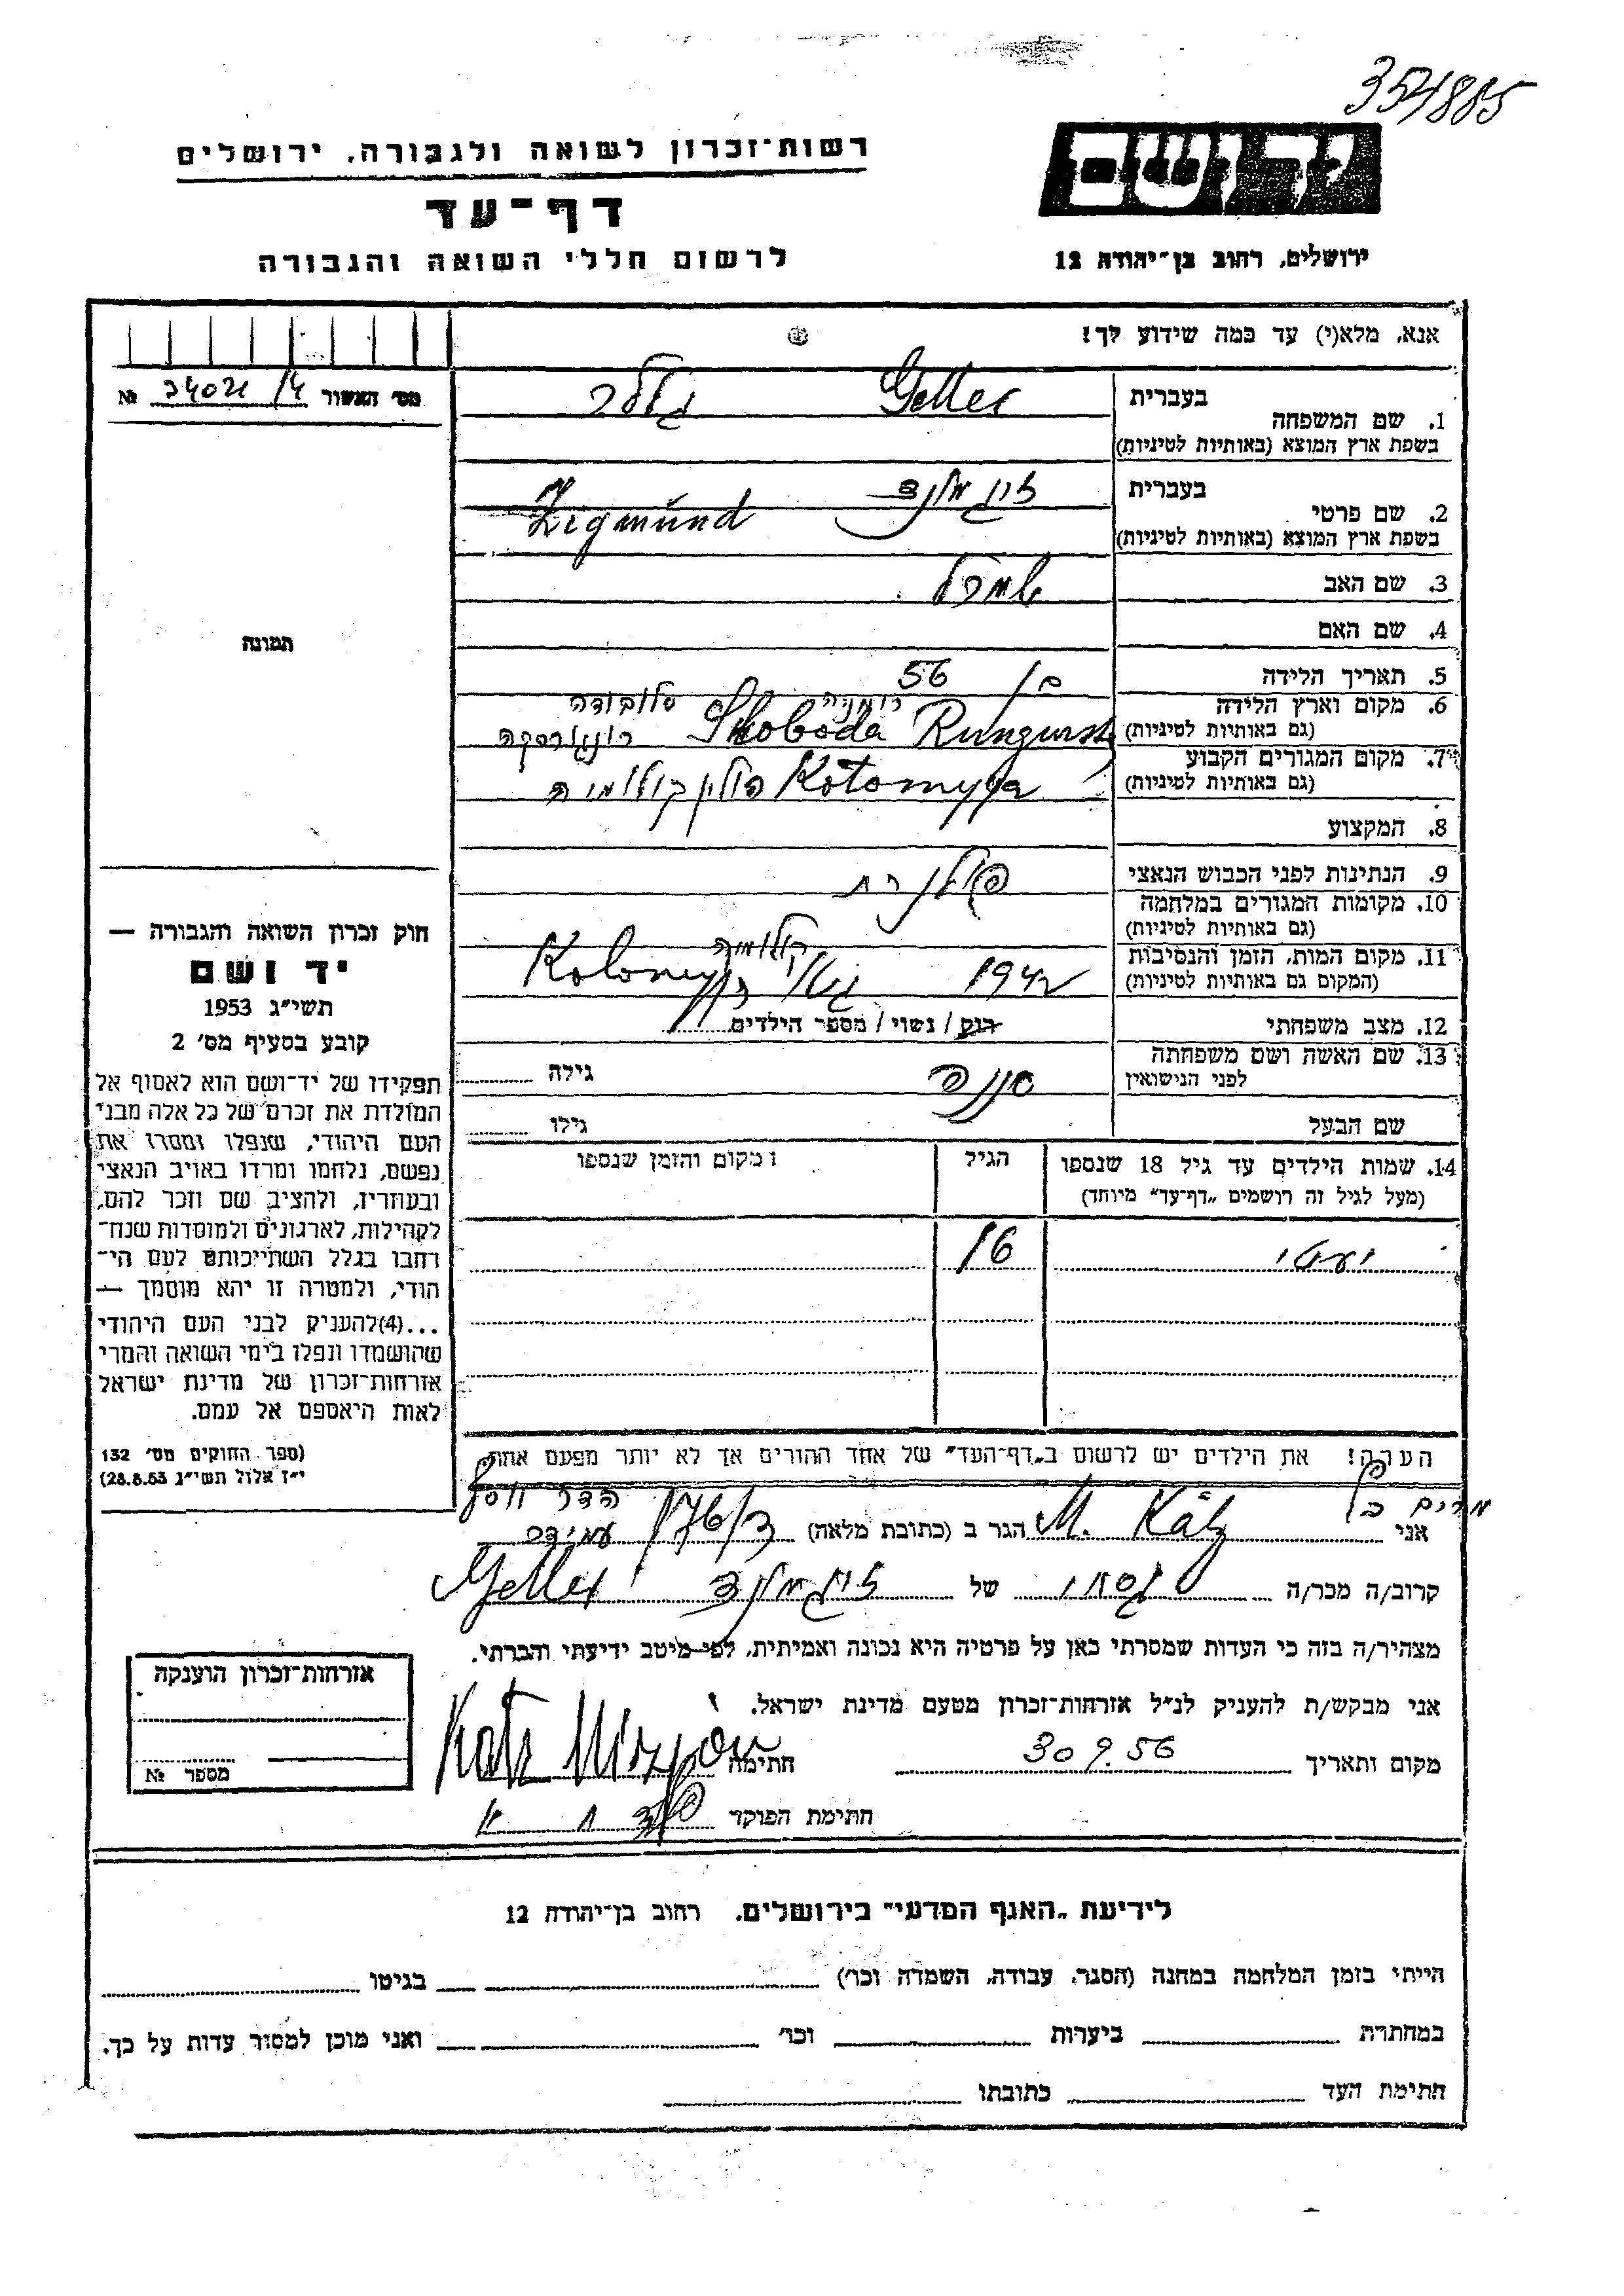 354885
רשות־זכרון לשואה ולגבורה, ירושלים
יד ושם
דף־עד
לרשום חללי השואה והגבורה
ירושלים, רחוב בן־יהודה 12
אנא, מלא(י) עד כמה שידוע לך!
מס' האשור 34021/4 №
בעברית
1. שם המשפחה
בשפת ארץ המוצא (באותיות לטיניות)
Geller גלר
בעברית
2. שם פרטי
בשפת ארץ המוצא (באותיות לטיניות)
זיגמונד
Zigmünd
3. שם האב
4. שם האם
5. תאריך הלידה בן 56
6. מקום וארץ הלידה
(גם באותיות לטיניות)
רומניה סלובודה
Sloboda Rungurska רונגורסקה
7. מקום המגורים הקבוע
(גם באותיות לטיניות)
Kolomyja פולין קולומיה
8. המקצוע
9. הנתינות לפני הכבוש הנאצי פולנית
10. מקומות המגורים במלחמה
(גם באותיות לטיניות)
11. מקום המות, הזמן והנסיבות
(המקום גם באותיות לטיניות)
קולומיה
1942 גטו
12. מצב משפחתי רוק / נשוי / מספר הילדים
13. שם האשה ושם משפחתה
לפני הנישואין
גילה
שם הבעל גילו
14. שמות הילדים עד גיל 18 שנספו
(מעל לגיל זה רושמים „דף־עד” מיוחד)
הגיל
מקום והזמן שנספו
16
הערה! את הילדים יש לרשום ב„דף־העד” של אחד ההורים אך לא יותר מפעם אחת
תמונה
חוק זכרון השואה והגבורה —
יד ושם
תשי״ג 1953
קובע בסעיף מס' 2
תפקידו של יד־ושם הוא לאסוף אל
המולדת את זכרם של כל אלה מבני
העם היהודי, שנפלו ומסרו את
נפשם, נלחמו ומרדו באויב הנאצי
ובעוזריו, ולהציב שם וזכר להם,
לקהילות, לארגונים ולמוסדות שנח־
רבו בגלל השתייכותם לעם הי־
הודי, ולמטרה זו יהא מוסמך —
...(4)להעניק לבני העם היהודי
שהושמדו ונפלו בימי השואה והמרי
אזרחות־זכרון של מדינת ישראל
לאות היאספם אל עמם.
(ספר החוקים מס' 132
י״ז אלול תשי״ג 28.8.53)
מרים כץ
אני M. Kätz הגר ב (כתובת מלאה) עמידר
קרוב/ה מכר/ה של זיגמונד Geller
מצהיר/ה בזה כי העדות שמסרתי כאן על פרטיה היא נכונה ואמיתית, לפי מיטב ידיעתי והכרתי.
אני מבקש/ת להעניק לנ״ל אזרחות־זכרון מטעם מדינת ישראל.
מקום ותאריך 30 9.56 חתימה
חתימת הפוקד
אזרחות־זכרון הוענקה
מספר №
לידיעת „האגף המדעי” בירושלים, רחוב בן־יהודה 12
הייתי בזמן המלחמה במחנה (הסגר, עבודה, השמדה וכו') בגיטו
במחתרת ביערות וכו' ואני מוכן למסור עדות על כך.
חתימת העד כתובתו